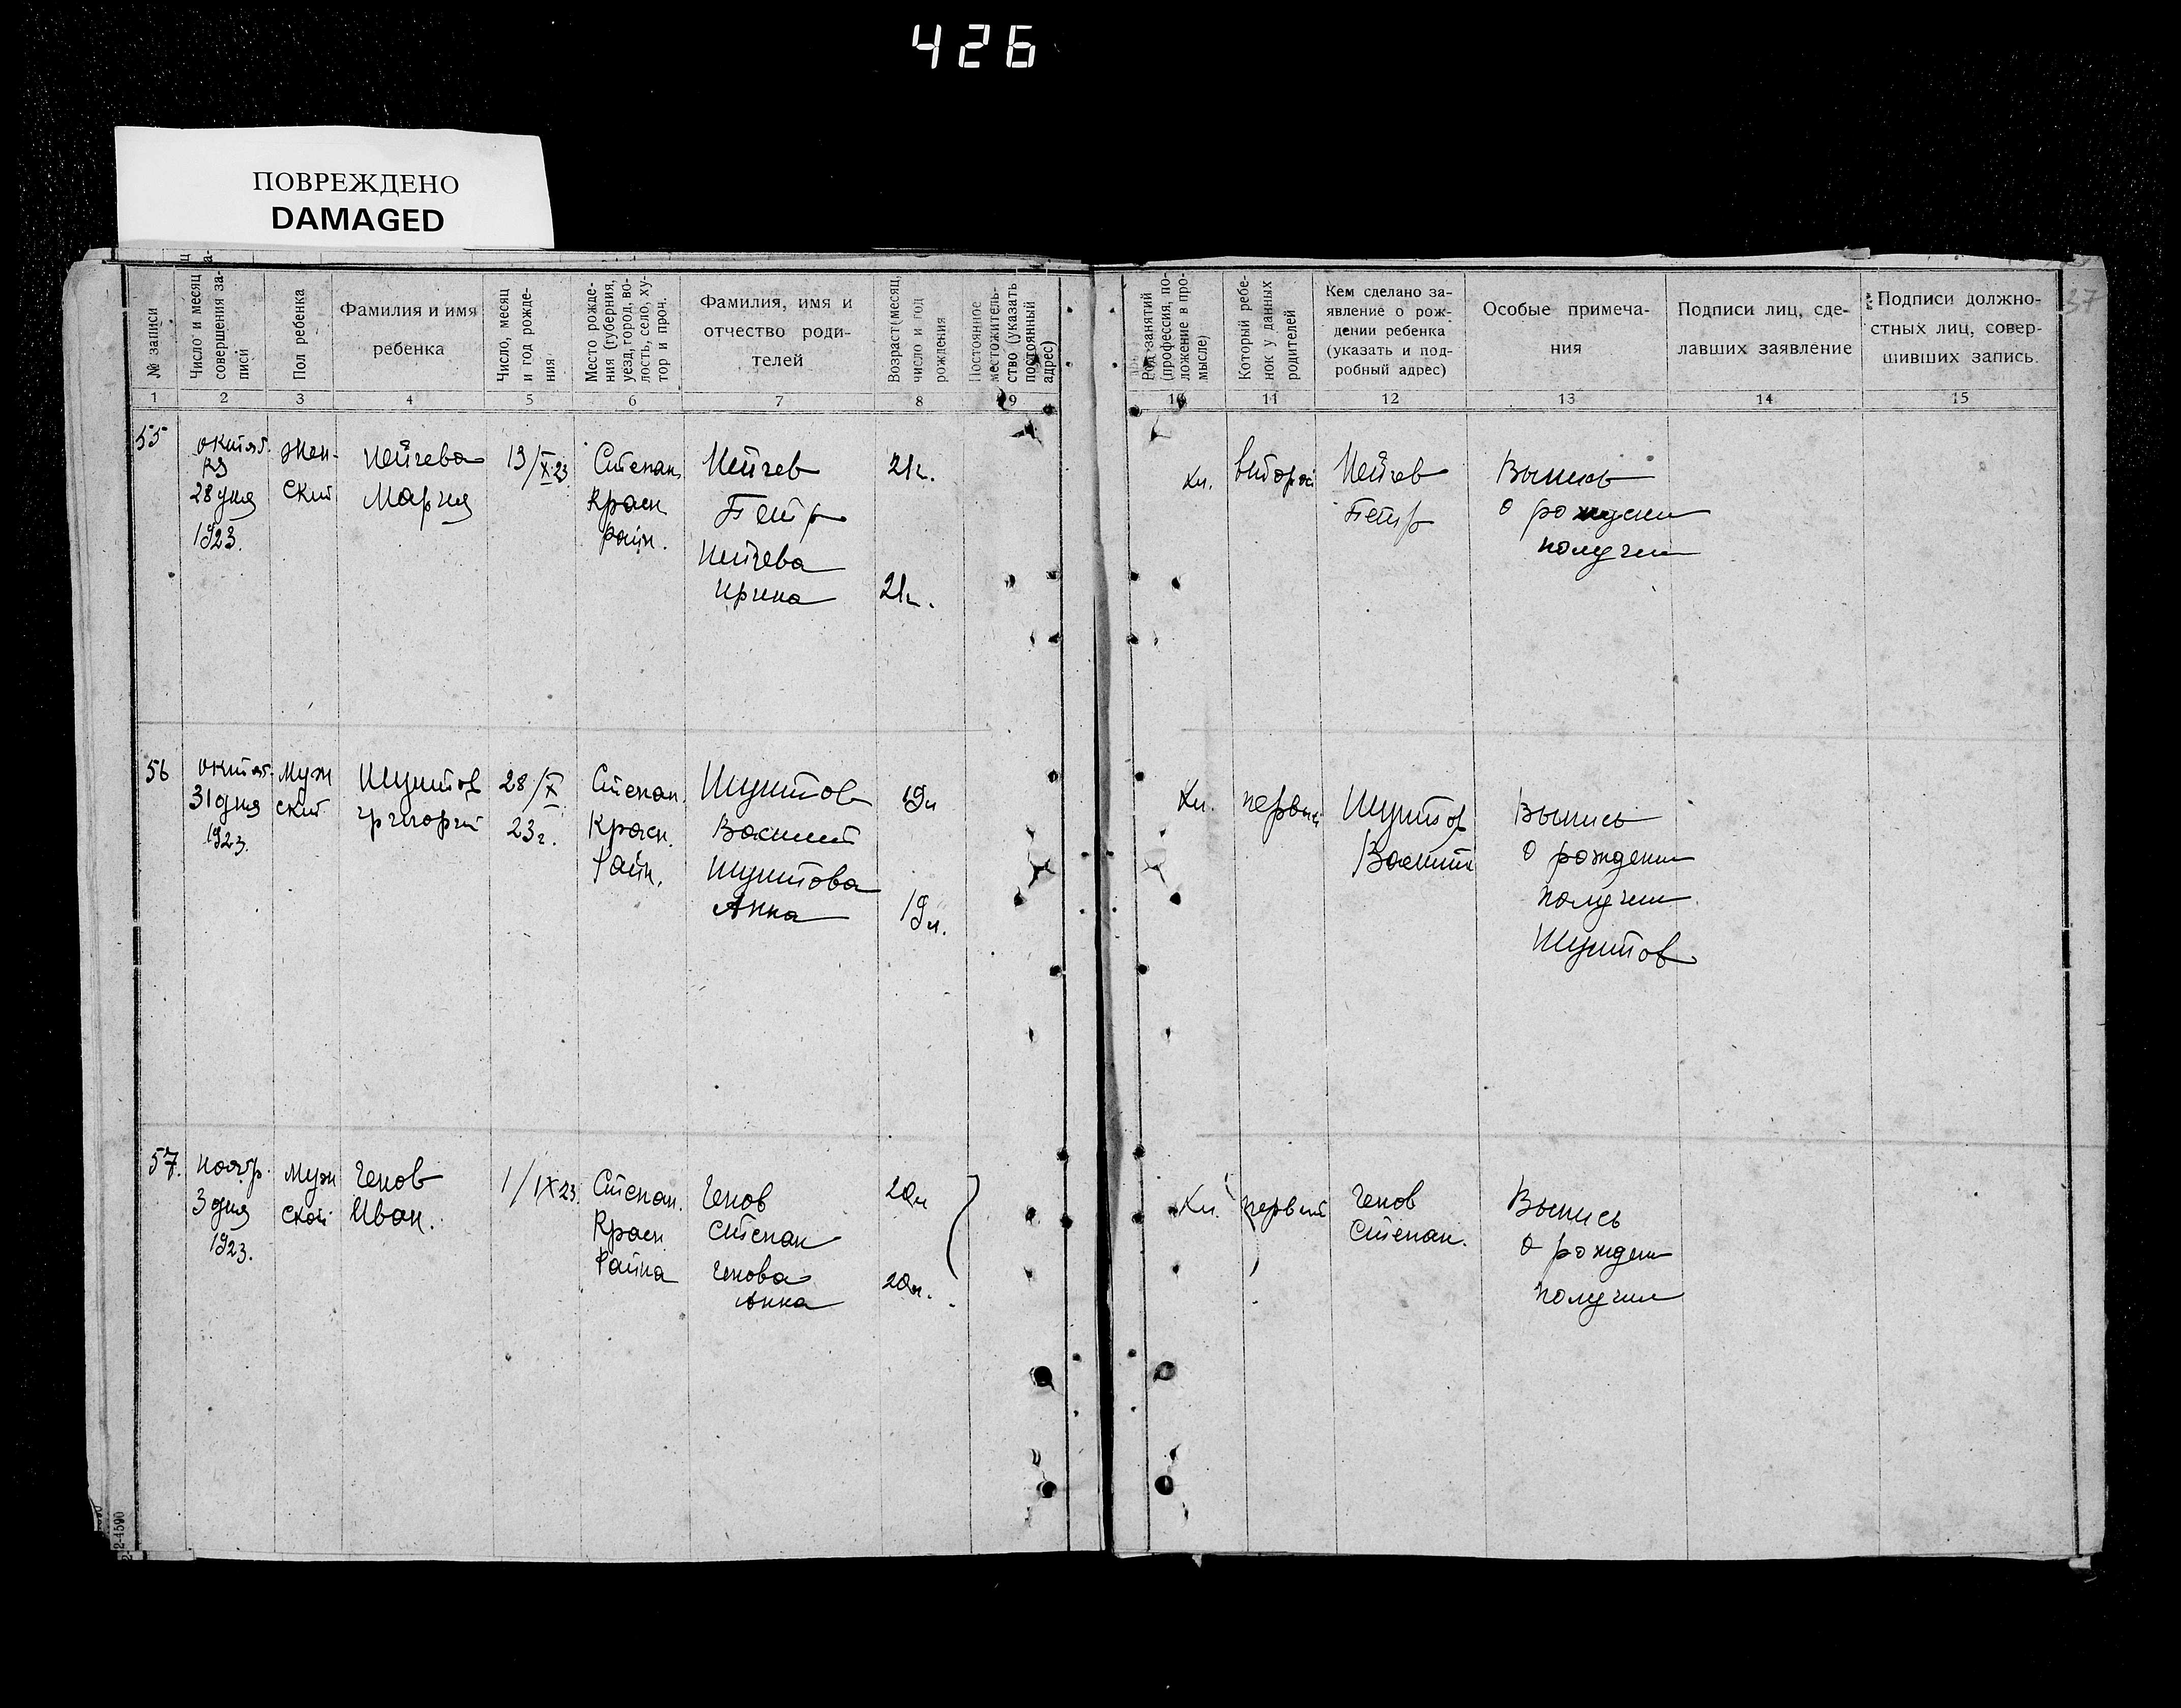 426
ПОВРЕЖДЕНО
DAMAGED
37
№ записи
Число и месяц
совершения за-
писи
Пол ребенка
Фамилия и имя
ребенка
Число, месяц
и год рожде-
ния
Место рожде-
ния (губерния,
уезд, город, во-
лость, село, ху-
тор и проч.
Фамилия, имя и
отчество роди-
телей
Возраст (месяц,
число и год
рождения
Постоянное
местожитель-
ство (указать
постоянный
адрес)
Род занятий
(профессия, по-
ложение в про-
мысле)
Который ребе-
нок у данных
родителей
Кем сделано за-
явление о рож-
дении ребенка
(указать и под-
робный адрес)
Особые примеча-
ния
Подписи лиц, сде-
лавших заявление
Подписи должно-
стных лиц, совер-
шивших запись.
1 2 3 4 5 6 7 8 9 10 11 12 13 14 15
55
октяб.
ря
28 дня
1923.
Жен-
ский
Пейчева
Мария
13/X 23
Степан.
Красн
район.
Пейчев
Петр
Пейчева
Ирина
21г.
21г.
Кл.
второй
Пейчев
Петр
Выпись
о рождени
получил
56
октяб.
31 дня
1923.
Муж
ский
Шуштов
Григорий
28/X
23г.
Степан.
Красн.
Райн.
Шуштов
Василий
Шуштова
Анна
19л
19л.
Кл.
первый
Шуштов
Василий
Выпись
о рождени
получил
Шуштов
57.
ноябр.
3 дня
1923.
муж
ской
Генов
Иван.
1/IX 23.
Степан.
Красн.
Райна
Генов
Степан
Генова
Анна
20л
20л.
Кл.
первый
Генов
Степан.
Выпись
о рожден
получил
2-4590